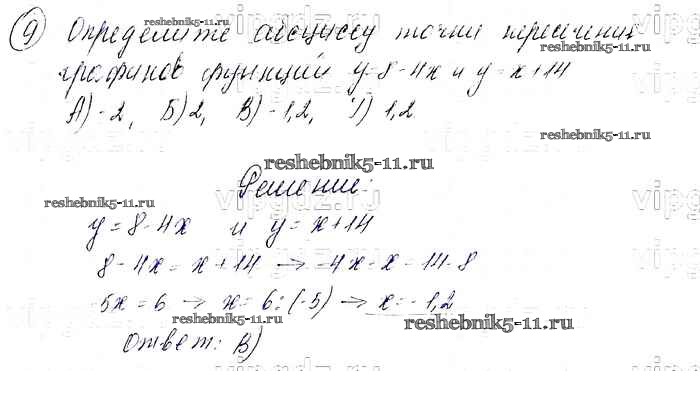 9) Определите абсциссу точки пересечения
графиков функций y=8-4x и y=x+14
А) -2, Б) 2, В) -1,2, Г) 1,2
Решение:
y=8-4x и y=x+14
8-4x=x+14 → -4x-x=14-8
-5x=6 → x=6:(-5) → x=-1,2
Ответ: В)
reshebnik5-11.ru
reshebnik5-11.ru
reshebnik5-11.ru
reshebnik5-11.ru
reshebnik5-11.ru
reshebnik5-11.ru
vipgdz.ru
vipgdz.ru
vipgdz.ru